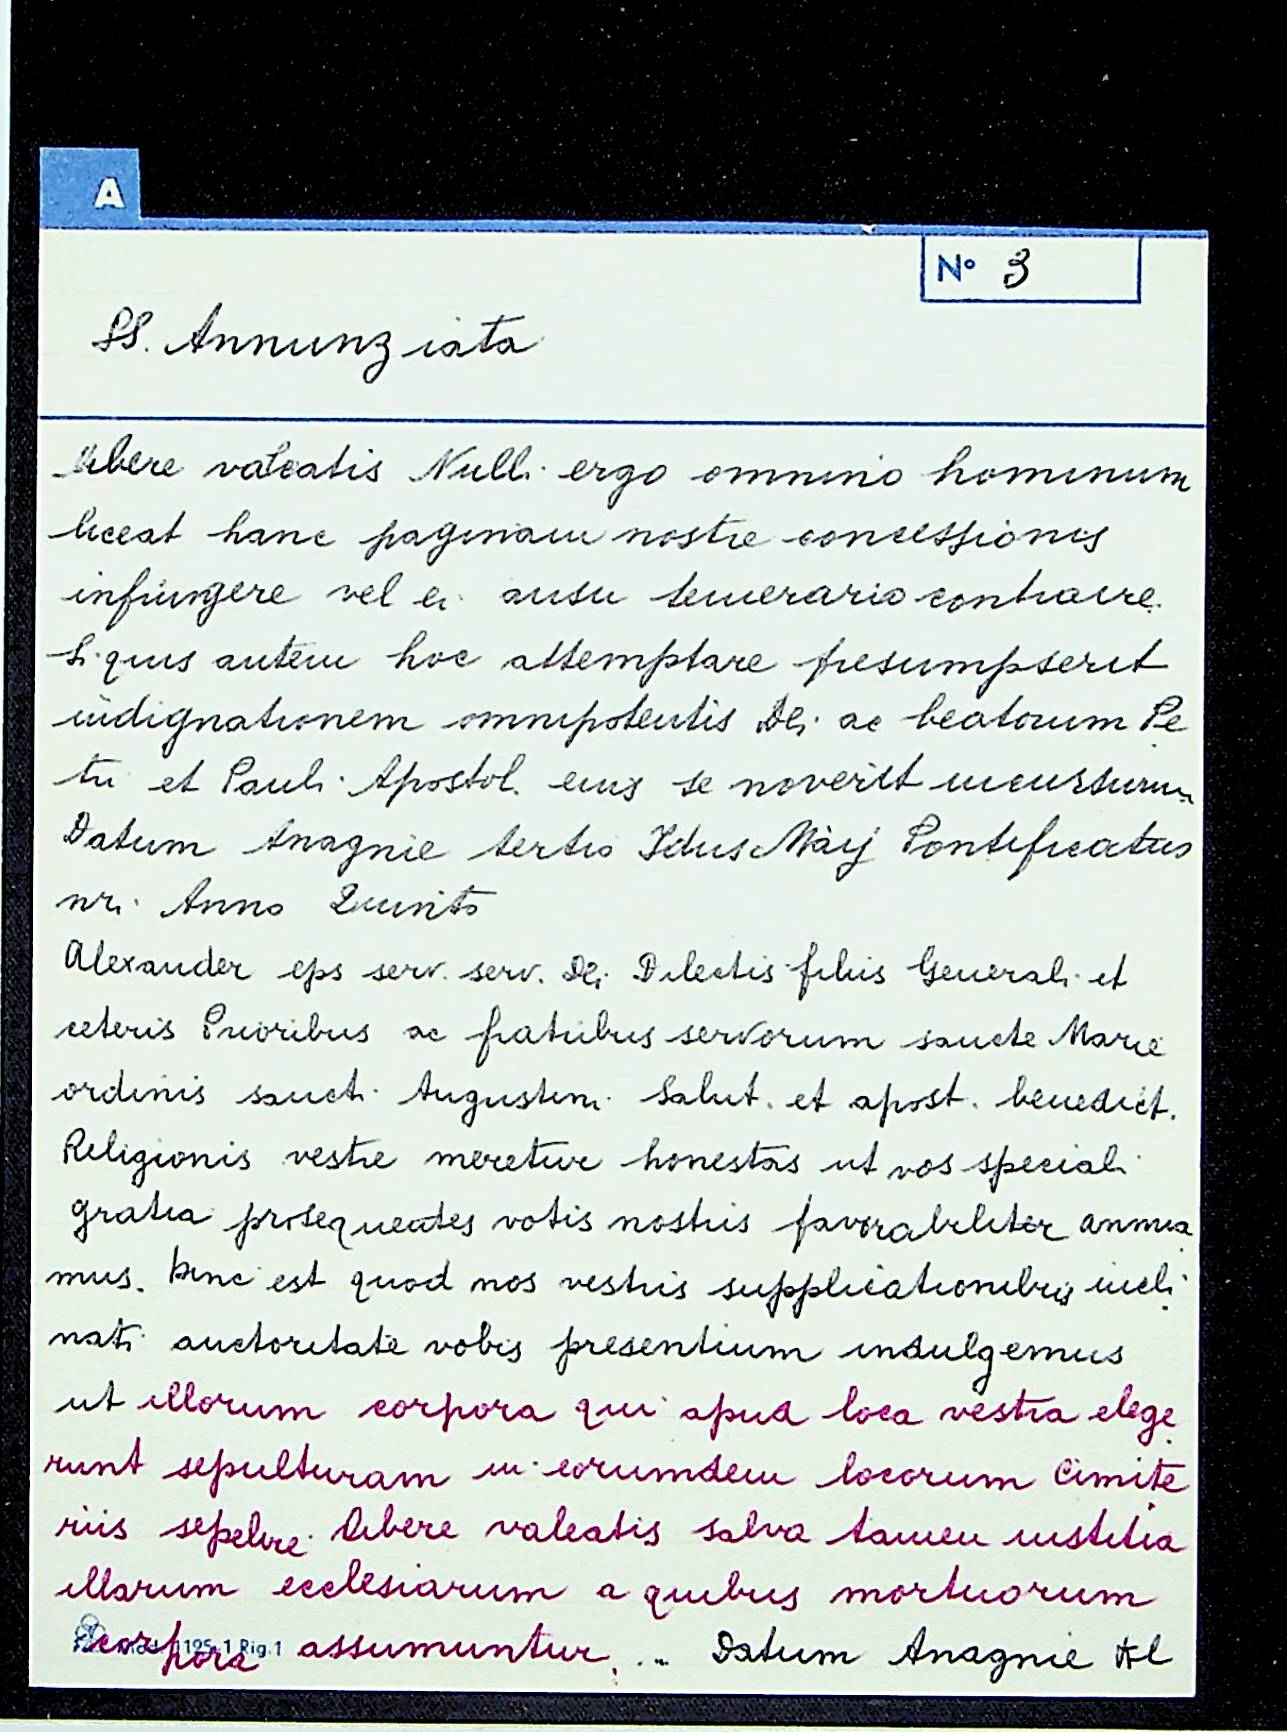 A
N° 3
SS. Annunziata
libere valeatis Nulli ergo omnino hominum
liceat hanc paginam nostre concessionis
infringere vel ei ausu temerario contraire.
Si quis autem hoc attemptare presumpserit
indignationem omnipotentis Dei ac beatorum Pe
tri et Pauli Apostol. eius se noverit incursurum
Datum Anagnie tertio Idus Maij Pontificatus
nri Anno Quinto
Alexander eps serv. serv. Dei Dilectis filiis Generali et
ceteris Prioribus ac fratribus servorum sancte Marie
ordinis sancti Augustini Salut. et apost. benedict.
Religionis vestre meretur honestas ut vos speciali
gratia prosequentes votis nostris favorabiliter annua
mus. hinc est quod nos vestris supplicationibus incli
nati auctoritate vobis presentium indulgemus
ut illorum corpora qui apud loca vestra elege
runt sepulturam in eorumdem locorum Cimite
riis sepelire libere valeatis salva tamen iustitia
illarum ecclesiarum a quibus mortuorum
corpora assumuntur. .. Datum Anagnie Kl
Mod. 1195-1 Rig.1